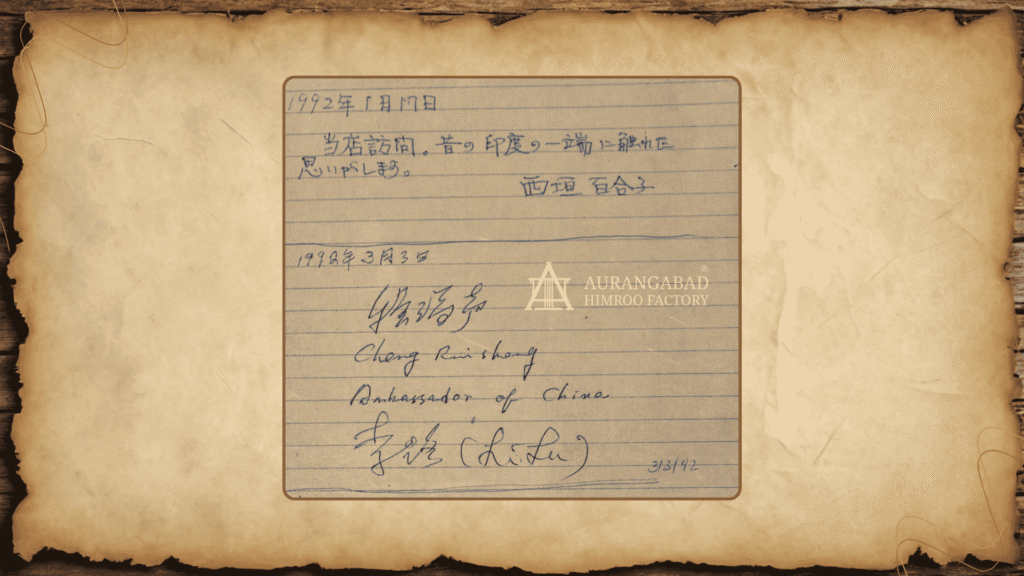 1992年1月17日
当店訪問。昔の印度の一端に触れた
思いがします。
西垣 百合子
1992年3月3日
程瑞声
Cheng Ruisheng
Ambassador of China
李路 (Li Lu)
3/3/92
AURANGABAD
HIMROO FACTORY